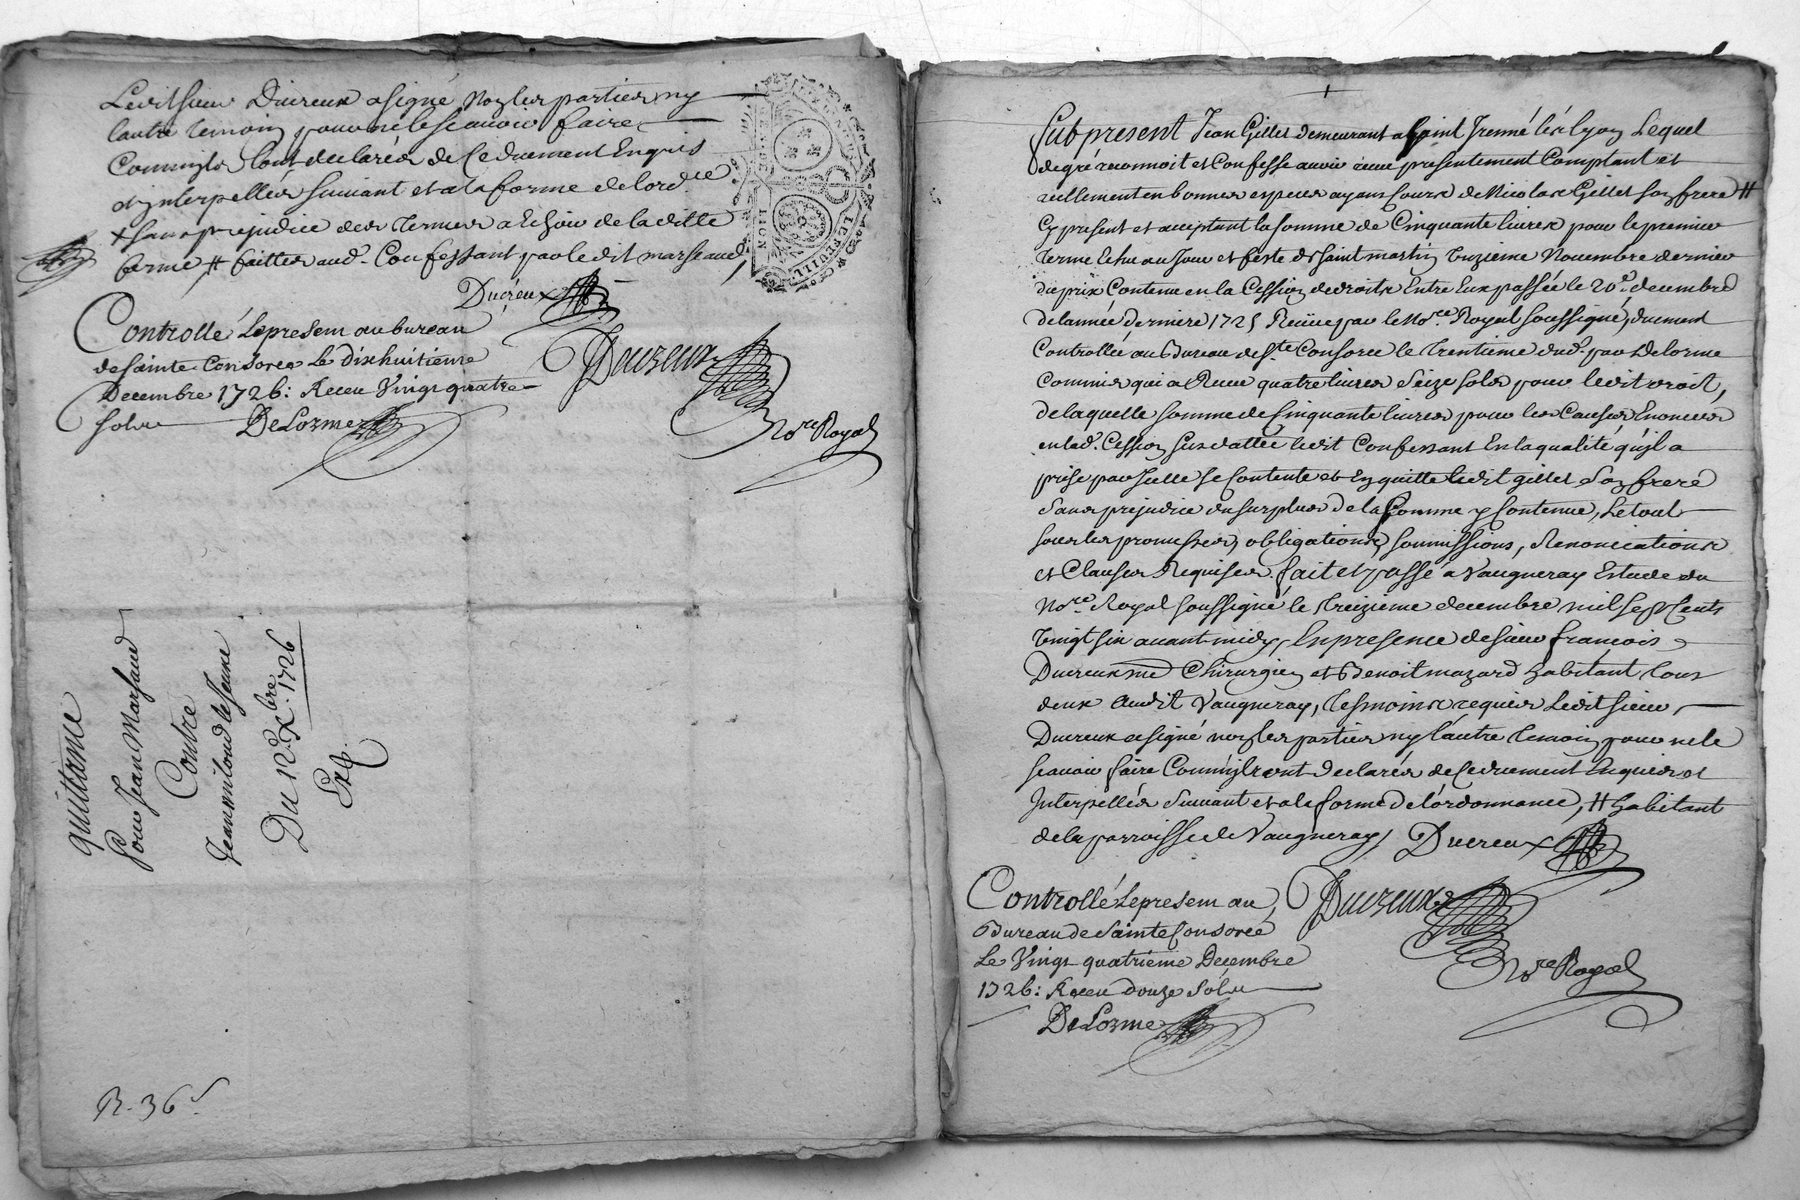 Ledit sieur Ducreux a signé non les parties ny
lautre temoin pour ne le scavoir faire
comm'ils lont declarés de ce duement enquis
et interpellés suivant et a la forme de lord.ce
+ sans prejudice des termes a echoir de laditte
ferme, # faittes aud. confessant par ledit marsaud,
Ducreux
Controllé le present au bureau
de Sainte Consorce le dixhuitieme
Decembre 1726: Receu Vingt quatre
sols
DeLorme
Ducreux
No.re Royal
LION
LE FEUILL
quittance
Pour Jean Marsaud
Contre
Jean le Jeune
Du 12.e X.bre 1726
Exp.
R. 36 s.
Fut present Jean Gillet demeurant a Saint Irenné lès lyon Lequel
de gré reconnoit et confesse avoir receu presentement comptant et
reellement en bonnes especes ayans cours de Nicolas Gillet son frere #
Cy present et acceptant la somme de Cinquante livres pour le premier
terme echu au jour et feste de saint martin unzieme Novembre dernier
du prix contenu en la Cession de droits entre eux passée le 20.e decembre
de lannée derniere 1725 Receue par le No.re Royal soussigné, duement
Controllée au Bureau de S.te Consorce le trentieme dud. par Delorme
Commis qui a Receu quatre livres seize sols pour ledit droit,
de laquelle somme de Cinquante livres pour les causes enoncées
en lad. Cession susdattée ledit Confessant en la qualité qu'il a
prise par icelle se contente et en quitte ledit gillet son frere
sans prejudice du surplus de la somme y contenue, Le tout
sous les promesses, obligations, soumissions, Renonciations
et Clauses Requises. fait et passé a Vaugneray Estude du
No.re Royal soussigné le treizieme decembre mil sept cents
vingt six avant midy, En presence de sieur françois
Ducreux me Chirurgien et Benoit mazard habitant tous
deux audit Vaugneray, tesmoins requis Ledit sieur
Ducreux a signé non les parties ny l'autre temoin pour ne le
scavoir faire comm'ils ont declarés de ce duement enquis et
Interpellés suivant et a la forme de l'ordonnance, # habitant
de la parroisse de Vaugneray, Ducreux
Controllé le present au
Bureau de Sainte Consorce
Le Vingt quatrieme Decembre
1726: Receu douze sols
DeLorme
Ducreux
No.re Royal